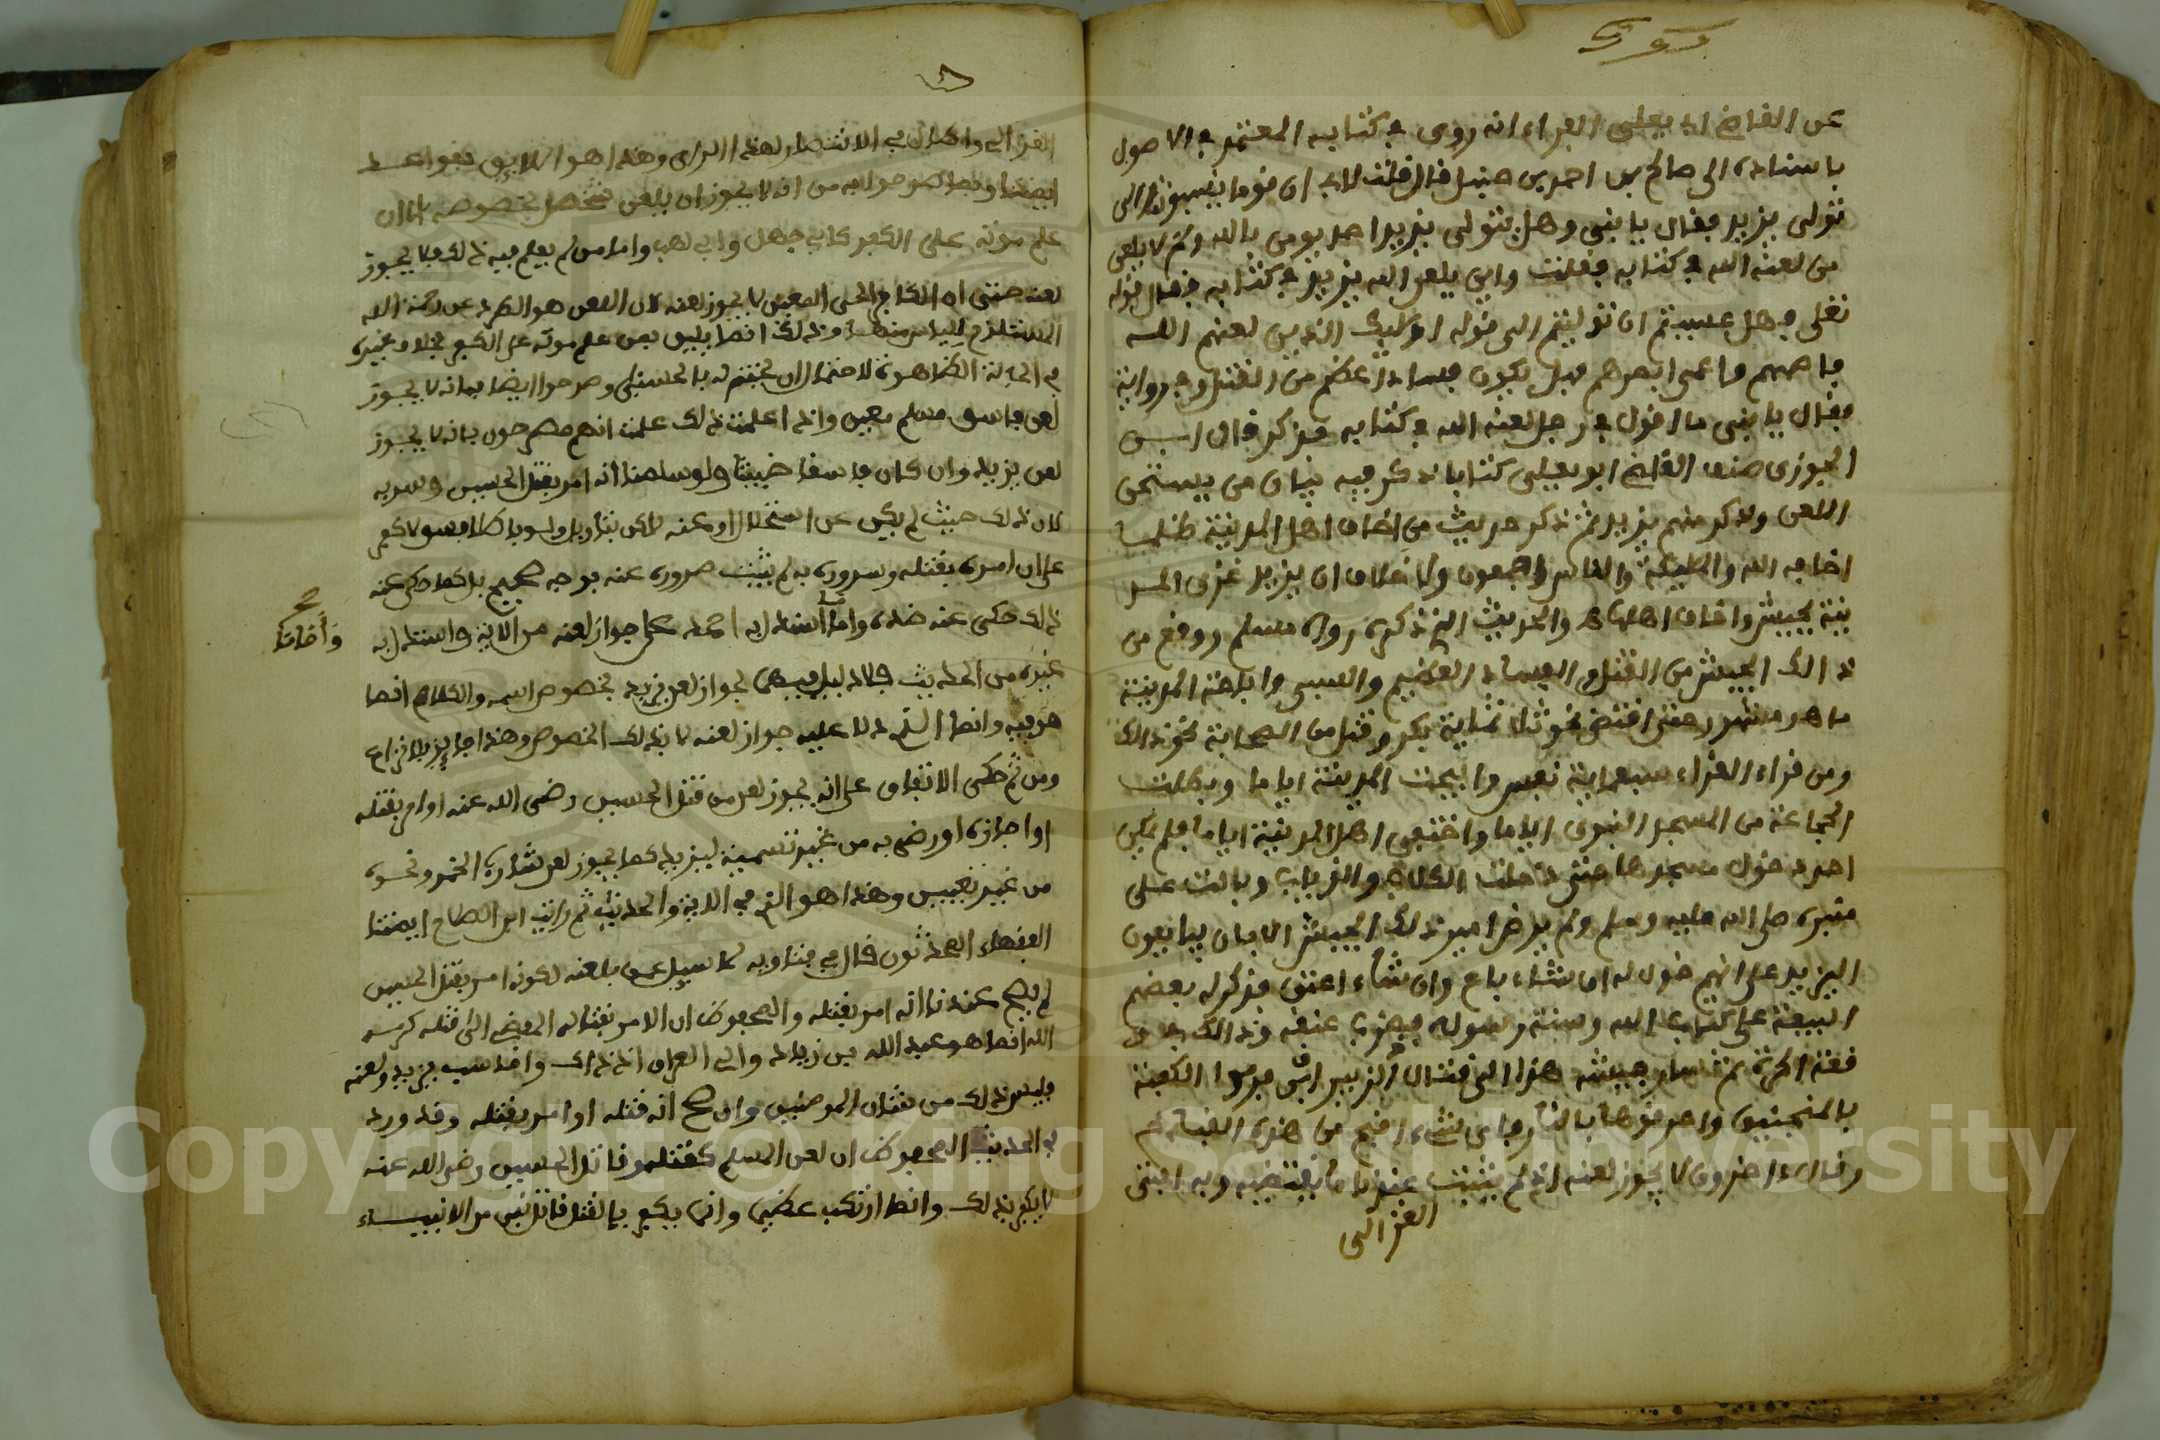 عن القاضي ابى يعلى الفراء انه روى في كتابه المعتمد في الاصول
باسناده الى صالح بن احمد بن حنبل قال قلت لابي ان قوما ينسبوننا الى
تولى يزيد فقال يا بني وهل يتولى يزيد احد يومن بالله ولم لا يلعن
من لعنه الله في كتابه فقلت واين يلعن الله يزيد في كتابه فقال قوله
تعلى فهل عسيتم ان توليتم الى قوله اوليك الذين لعنهم الله
فاصمهم واعمى ابصرهم فهل يكون فساد اعظم من القتل وفي رواية
فقال يا بنى ما اقول في رجل لعنه الله في كتابه فذكره قال ابن
الجوزى صنف القاضي ابو يعلى كتابا ذكر فيه بيان من يستحق
اللعن وذكر منهم يزيد ثم ذكر حديث من اخاف اهل المدينة ظلما
اخافه الله والمليكة والناس اجمعون ولا خلاف ان يزيد غزى المد
ينة بجيش واخاف اهلها والحديث الذي ذكره رواه مسلم ووقع من
ذالك الجيش من القتل و الفساد العظيم والسبى واباحة المدينة
ما هو مشهور حتى افتض نحو ثلاثماية بكر وقتل من الصحابة نحو ذالك
ومن قراء القراء سبعماية نفس وابيحت المدينة اياما وبطلت
الجماعة من المسجد النبوى اياما واختفى اهل المدينة اياما فلم يمكن
احد دخول مسجدها حتى دخلت الكلاب والذياب وبالت على
منبره صلى الله عليه وسلم ولم يرض امير ذلك الجيش الا بان يبايعون
اليزيد على انهم خول له ان شاء باع وان شاء اعتق فذكر له بعضهم
البيعة على كتاب الله وسنة رسوله فضرب عنقه وذالك في
وقعة الحرة ثم سار جيشه هذا الى قتال ابن الزبير فرموا الكعبة
بالمنجنيق واحرقوها بالنار فاى شيء اقبح من هذه القبايح
وقال اخرون لا يجوز لعنه اذ لم يثبت عندنا ما يقتضيه وبه افتى
الغزالى
الغزالي واطال في الانتصار لهذا الراى وهذا هو اللايق بقواعد
ايمتنا وبما صرحوا به من انه لا يجوز ان يلعن شخص بخصوصه الا ان
علم موته على الكفر كابي جهل وابي لهب واما من لم يعلم فيه ذلك فلا يجوز
لعنه حتى ان الكافر الحى المعين لا يجوز لعنه لان اللعن هو الطرد عن رحمة الله
المستلزم لليأس منها وذلك انما يليق بمن علم موته على الكفر فلا وغيره
في الحالة الظاهرة لاحتمال ان يختم له بالحسنى وصرحوا ايضا بانه لا يجوز
لعن فاسق مسلم معين واذا علمت ذلك علمت انهم مصرحون بانه لا يجوز
لعن يزيد وان كان فاسقا خبيثا ولو سلمنا انه امر بقتل الحسين وسر به
لان ذلك حيث لم يكن عن استحلال او عنه لكن بتاويل ولو باطلا فسق لا كفر
على ان امره بقتله وسروره به لم يثبت صدوره عنه بوجه صحيح بل كما حكى عنه
ذلك حكى عنه ضده واما ما استدل به احمد على جواز لعنه من الاية واستدل به
غيره من الحديث فلا دليل فيهما لجواز لعن يزيد بخصوص اسمه والكلام انما
هو فيه وانما الذي دلا عليه جواز لعنه لا بذلك الخصوص وهذا جايز بلا نزاع
ومن ثم حكى الاتفاق على انه يجوز لعن من قتل الحسين رضى الله عنه او امر بقتله
او اجازه او رضي به من غير تسمية ليزيد كما يجوز لعن شارب الخمر ونحوه
من غير تعيين وهذا هو الذي في الاية والحديث ثم رايت ابن الصلاح ايمتنا
الفقهاء المحدثون قال في فتاويه لما سيل عمن يلعنه لكونه امر بقتل الحسين
لم يصح عندنا انه امر بقتله والمحفوظ ان الامر بقتاله المفضي الى قتله كرمه
الله انما هو عبيد الله بن زياد والي العراق اذ ذاك واما سب يزيد ولعنه
فليس ذلك من شان المومنين وان صح انه قتله او امر بقتله وقد ورد
في الحديث المحفوظ ان لعن المسلم كقتله وقاتل الحسين رضى الله عنه
لا يكفر بذلك وانما ارتكب عظيما وانما يكفر بالقتل قاتل نبي من الانبيـاء
واخافتا
صح
Copyright © King Saud University